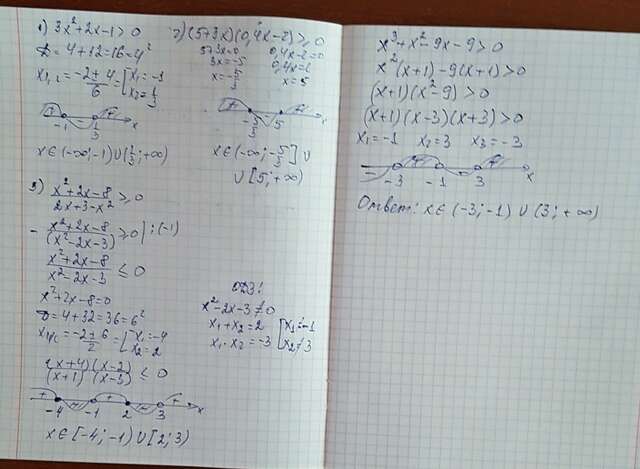 1) 3x²+2x-1>0
D=4+12=16=4²
x₁,₂=(-2±4)/6=[x₁=-1
x₂=1/3
+ - +
-1 1/3 x
x∈(-∞;-1)∪(1/3;+∞)
2) (5+3x)(0,4x-2)≥0
5+3x=0 0,4x-2=0
3x=-5 0,4x=2
x=-5/3 x=5
+ - +
-5/3 5 x
x∈(-∞;-5/3]∪
∪[5;+∞)
3) (x²+2x-8)/(2x+3-x²)≥0
-(x²+2x-8)/(x²-2x-3)≥0 | :(-1)
(x²+2x-8)/(x²-2x-3)≤0
x²+2x-8=0
D=4+32=36=6²
x₁,₂=(-2±6)/2=[x₁=-4
x₂=2
ОДЗ:
x²-2x-3≠0
x₁+x₂=2 [x₁≠-1
x₁·x₂=-3 x₂≠3
(x+4)(x-2)/(x+1)(x-3)≤0
+ - + - +
-4 -1 2 3 x
x∈[-4;-1)∪[2;3)
x³+x²-9x-9>0
x²(x+1)-9(x+1)>0
(x+1)(x²-9)>0
(x+1)(x-3)(x+3)>0
x₁=-1 x₂=3 x₃=-3
- + - +
-3 -1 3 x
Ответ: x∈(-3;-1)∪(3;+∞)